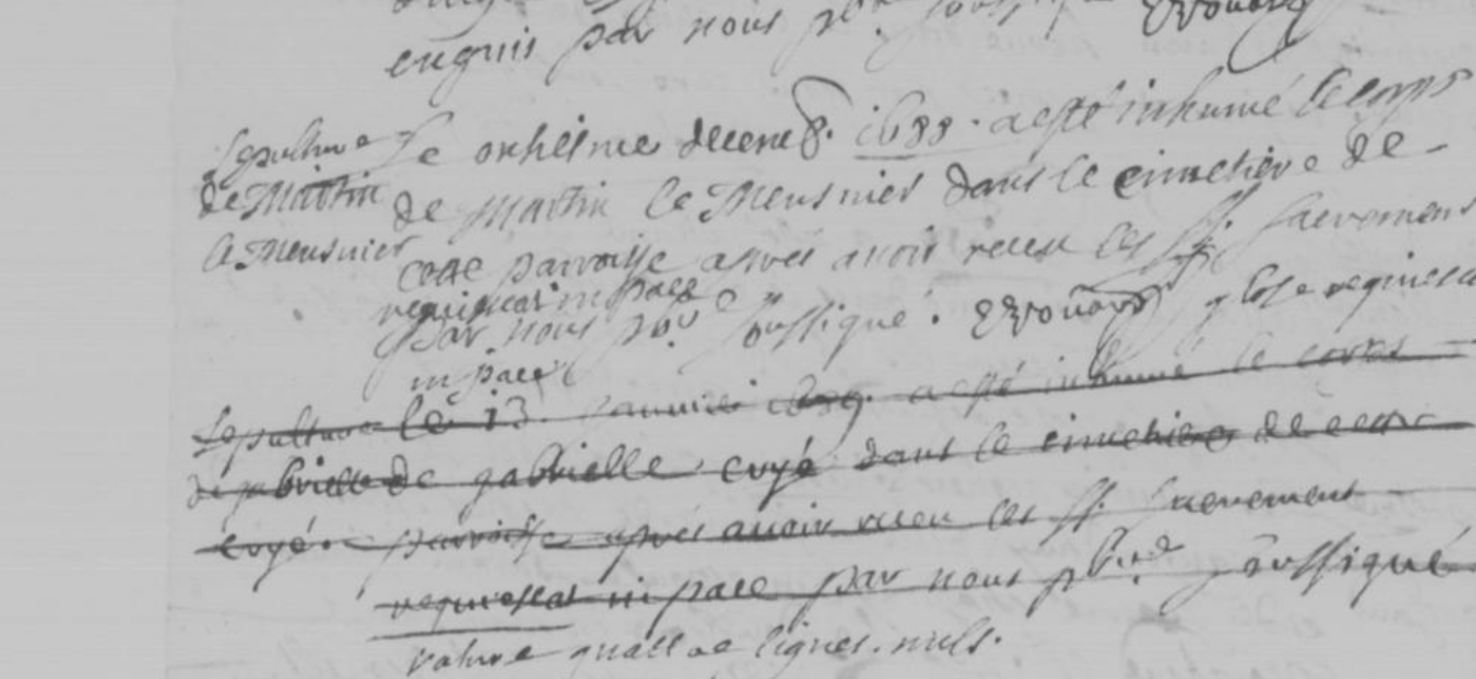 enquis par nous pbr
Sepulture Le onziesme decemb. 1688. a esté inhumé le corps
de Martin de Martin le Meusnier dans le cimetiere de
le Meusnier cette parroisse apres avoir receu les SS. sacrement
requiescat in pace
par nous pbr soussigné.
requiescat
in pace
Sepulture le 13 Janvier 1689. a esté inhumé le corps
de gabrielle de gabrielle coyé dans le cimetiere de cette
coyé. parroisse apres avoir receu les SS. sacrement
requiescat in pace par nous pbre soussigné
rature quattre lignes. nuls.